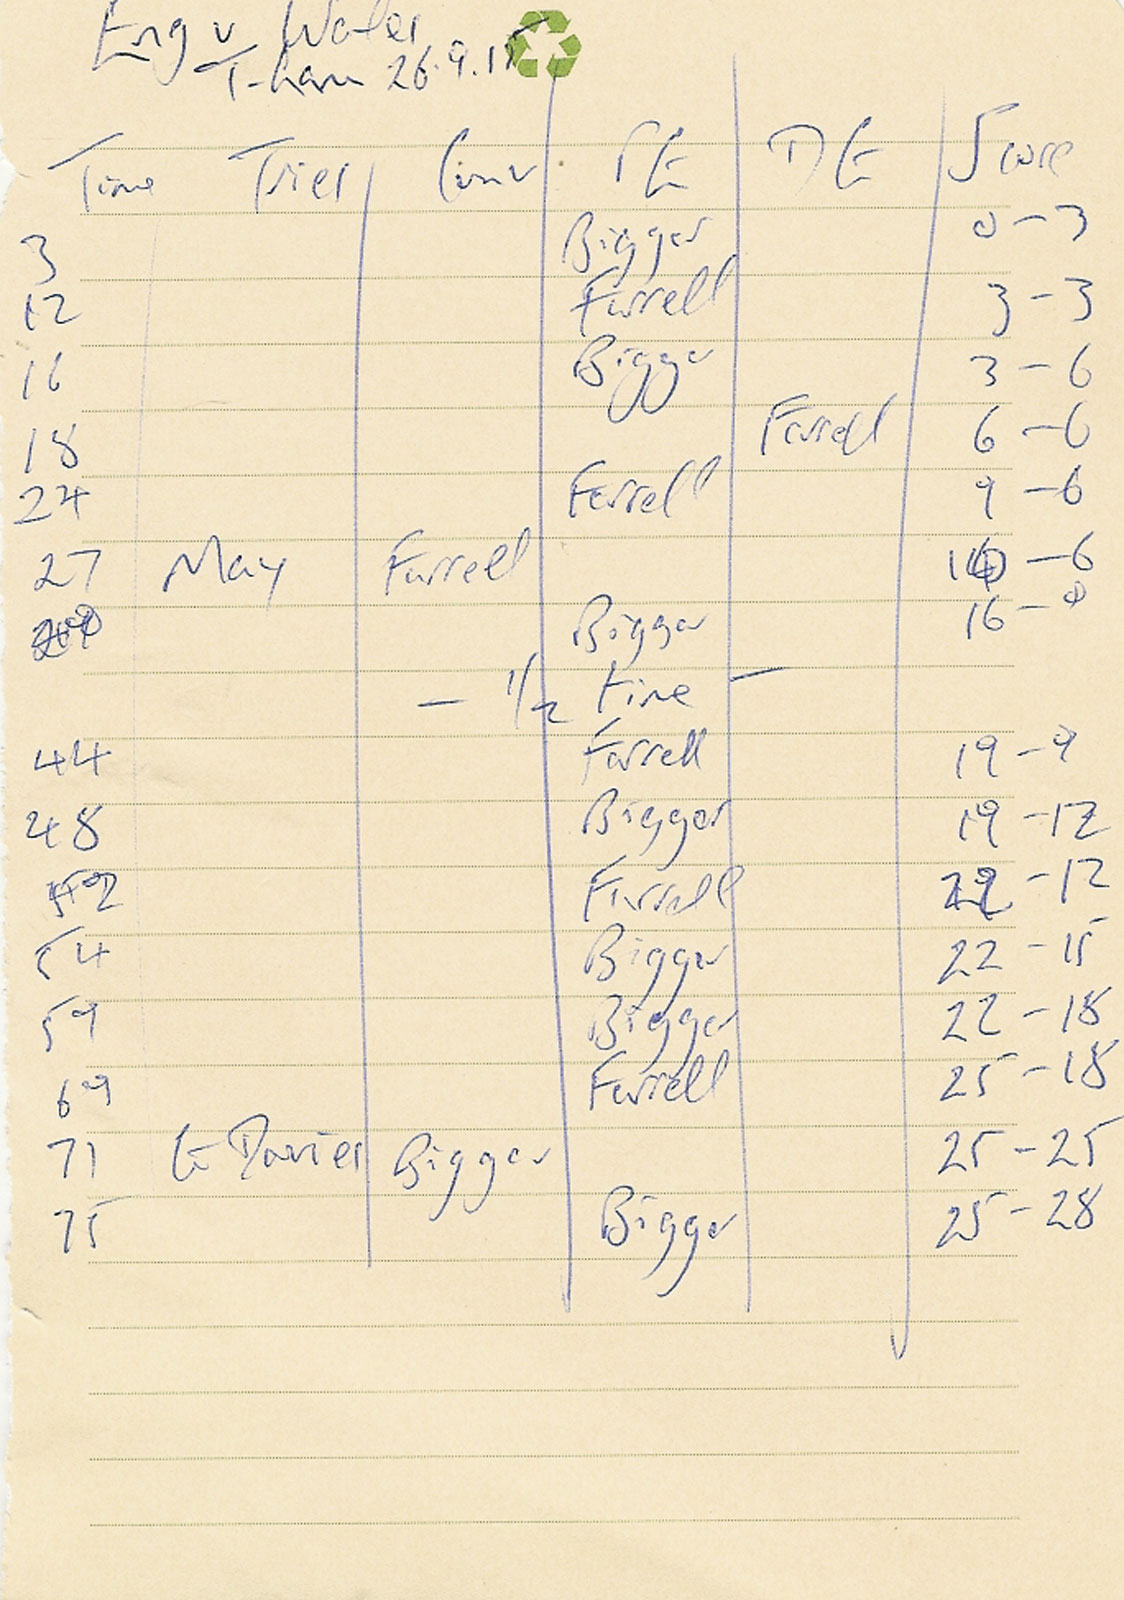 Eng v Wales
T-ham 26.9.15
Time Tries Conv PG DG Score
3 Biggar 0-3
12 Farrell 3-3
16 Biggar 3-6
18 Farrell 6-6
24 Farrell 9-6
27 May Farrell 16-6
Biggar 16-9
- 1/2 time -
44 Farrell 19-9
48 Biggar 19-12
52 Farrell 22-12
54 Biggar 22-15
59 Biggar 22-18
69 Farrell 25-18
71 G Davies Biggar 25-25
75 Biggar 25-28